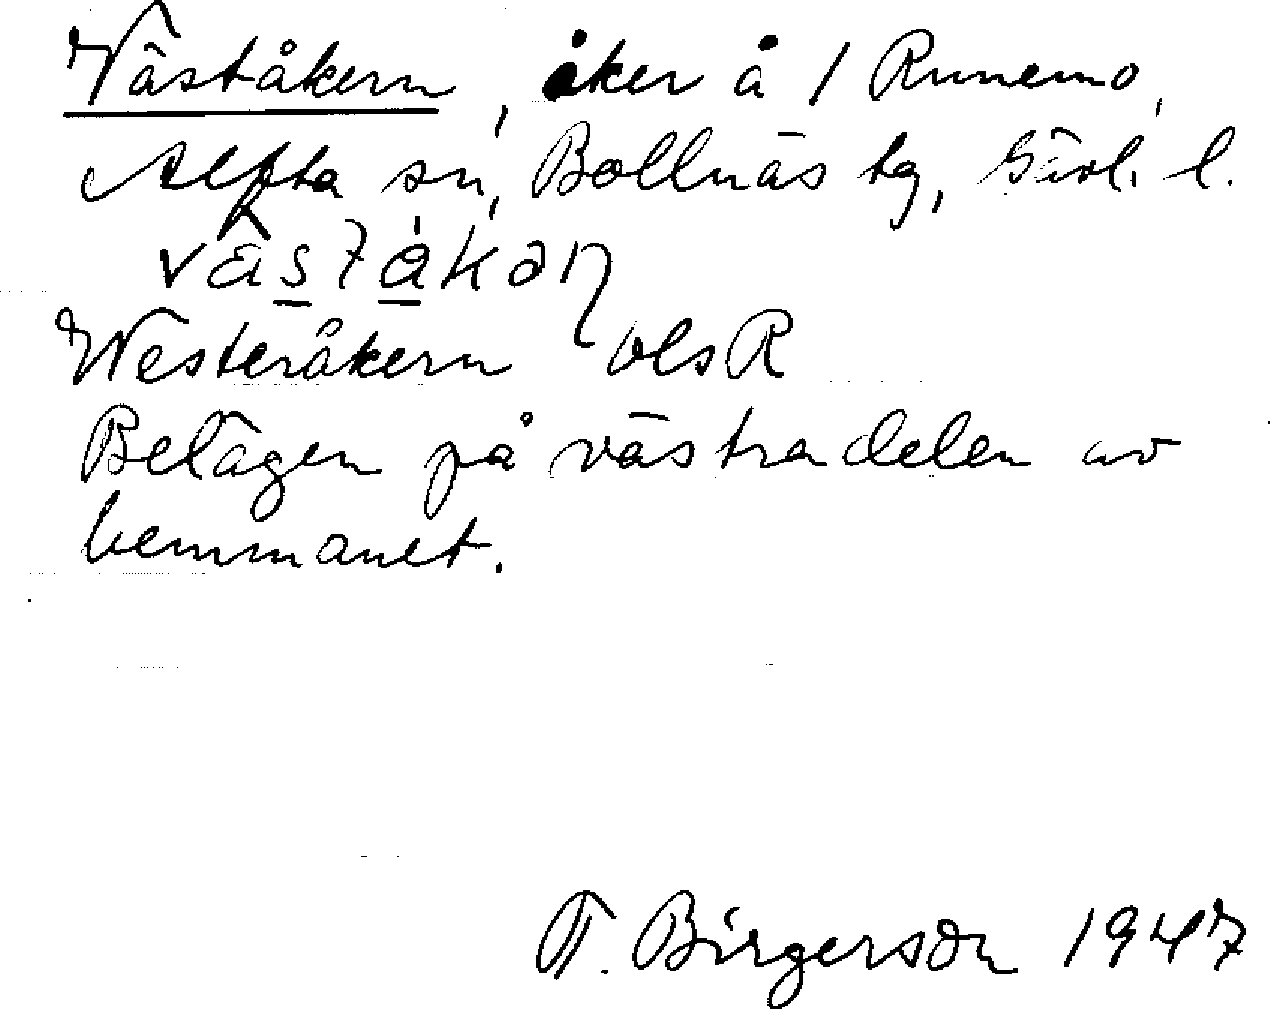 Väståkern, åker å 1 Runemo,
Alfta sn, Bollnäs tg, Gävl. l.
Westeråkern
Belägen på västra delen av
hemmanet.
T. Birgerson 1947